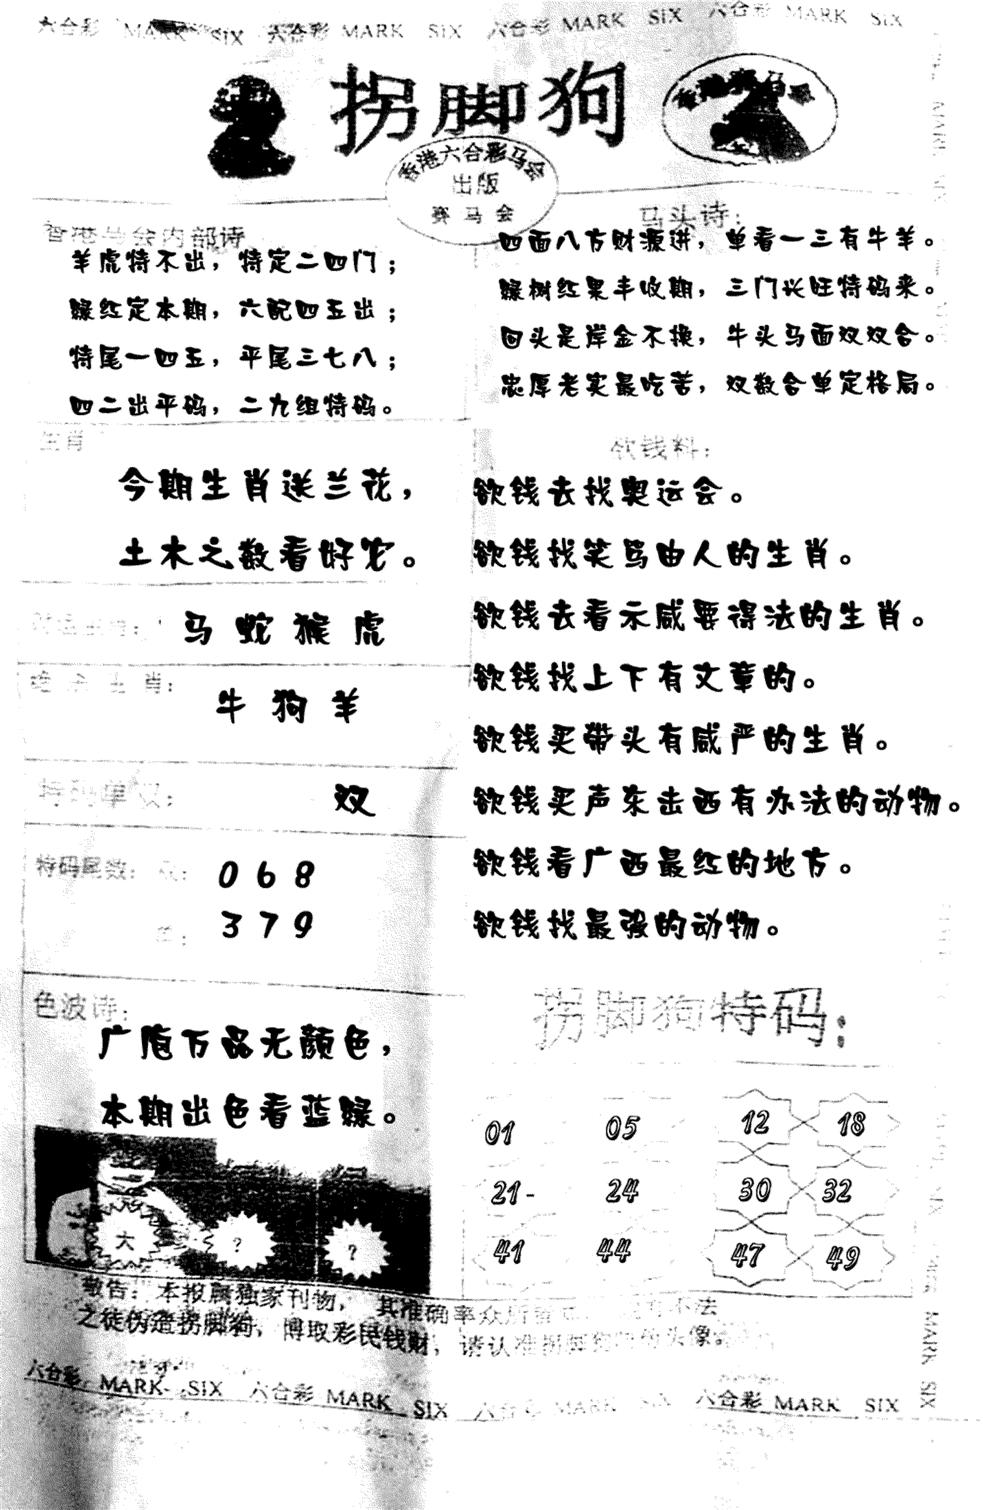 六合彩 MARK SIX 六合彩 MARK SIX 六合彩 MARK SIX 六合彩 MARK SIX
拐脚狗
香港六合彩马会
出版
赛马会
香港马会内部诗:
羊虎特不出，特定二四门；
绿红定本期，六配四五出；
特尾一四五，平尾三七八；
四二出平码，二九组特码。
马头诗：
四面八方财源进，单看一三有牛羊。
绿树红果丰收期，三门兴旺特码来。
回头是岸金不换，牛头马面双双合。
忠厚老实最吃苦，双数合单定格局。
生肖
今期生肖送兰花，
土木之数看好它。
马 蛇 猴 虎
绝杀生肖：
牛 狗 羊
特码单双：
双
特码尾数：双：
0 6 8
单：
3 7 9
欲钱料：
欲钱去找奥运会。
欲钱找笑骂由人的生肖。
欲钱去看示威要得法的生肖。
欲钱找上下有文章的。
欲钱买带头有威严的生肖。
欲钱买声东击西有办法的动物。
欲钱看广西最红的地方。
欲钱找最强的动物。
色波诗：
广庖万品无颜色，
本期出色看蓝绿。
大 ? ?
拐脚狗特码：
01 05 12 18
21- 24 30 32
41 44 47 49
敬告：本报属独家刊物，其准确率众所
不法
之徒伪造拐脚狗，博取彩民钱财，请认准拐脚狗
头像。
六合彩 MARK SIX 六合彩 MARK SIX 六合彩 MARK SIX 六合彩 MARK SIX
MARK SIX